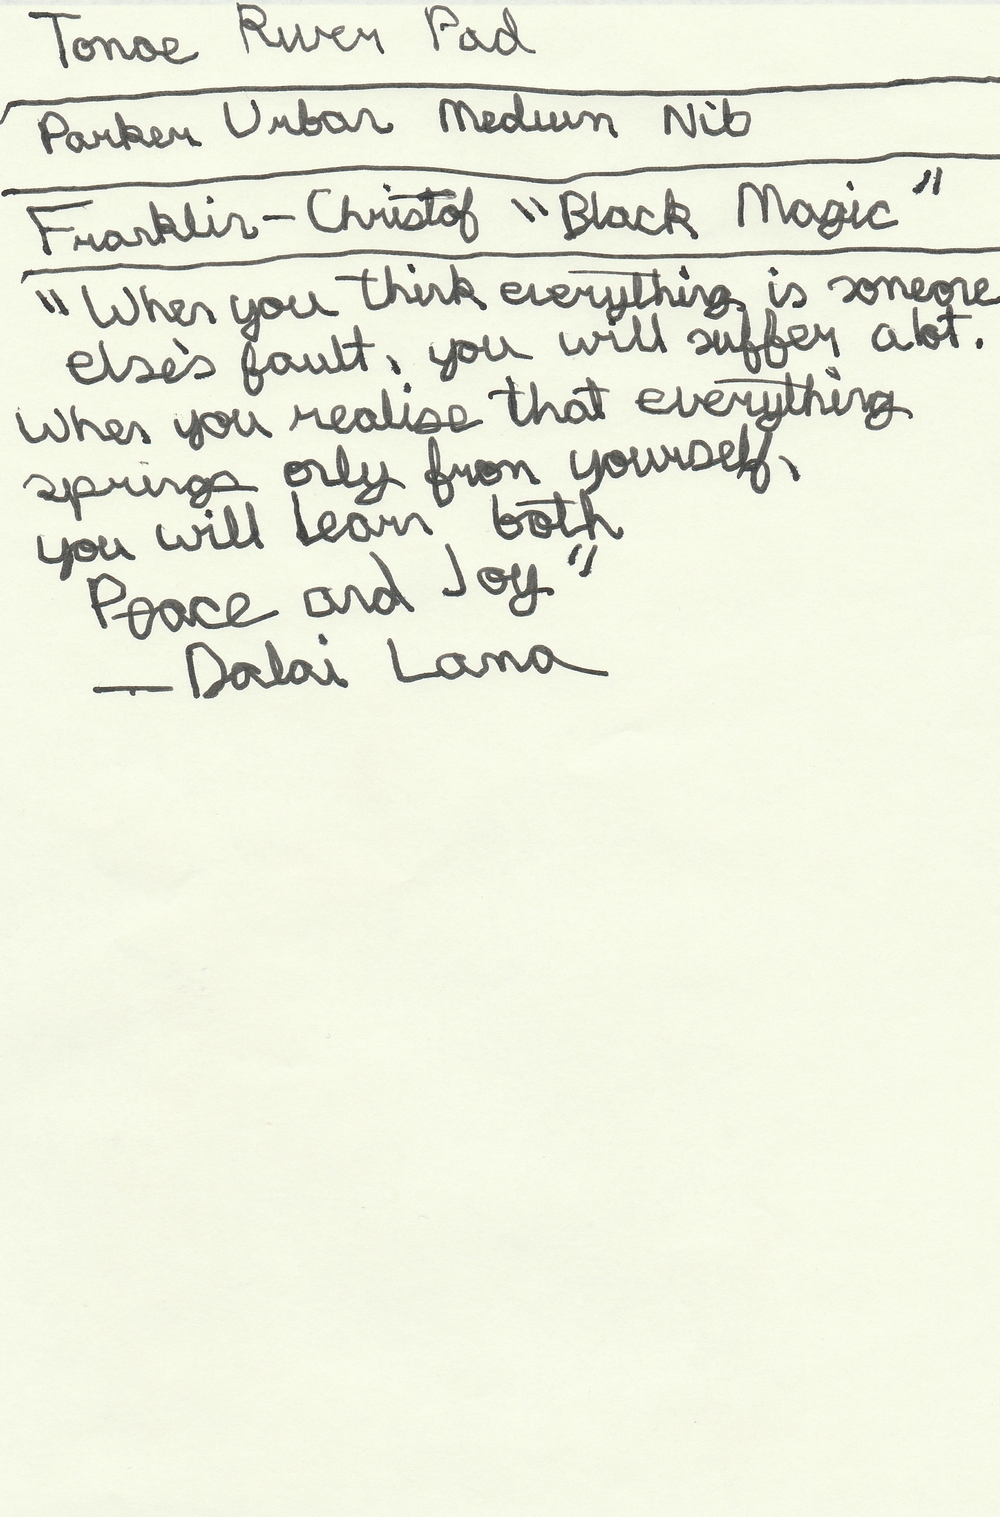 Tomoe River Pad
Parker Urban Medium Nib
Franklin-Christof "Black Magic"
"When you think everything is someone
else's fault, you will suffer a lot.
When you realise that everything
springs only from yourself,
you will learn both
Peace and Joy"
— Dalai Lama